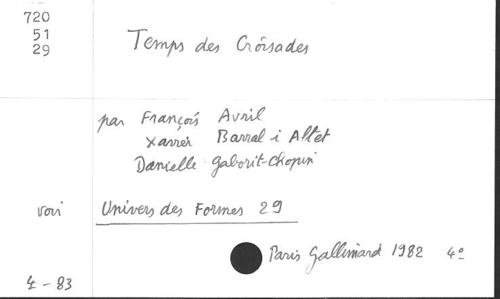 720
51
29
Temps des Croisades
par François Avril
Xavier Barral i Altet
Danielle Gaborit-Chopin
voir Univers des Formes 29
Paris Gallimard 1982 4°
4-83